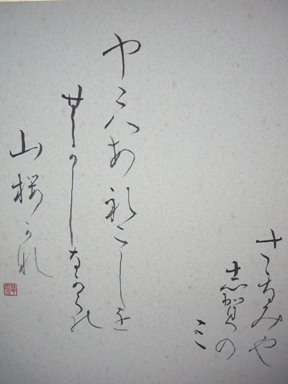 さゝなみや
志賀の
ミ
やこハあれにしを
むかしなからの
山桜かな